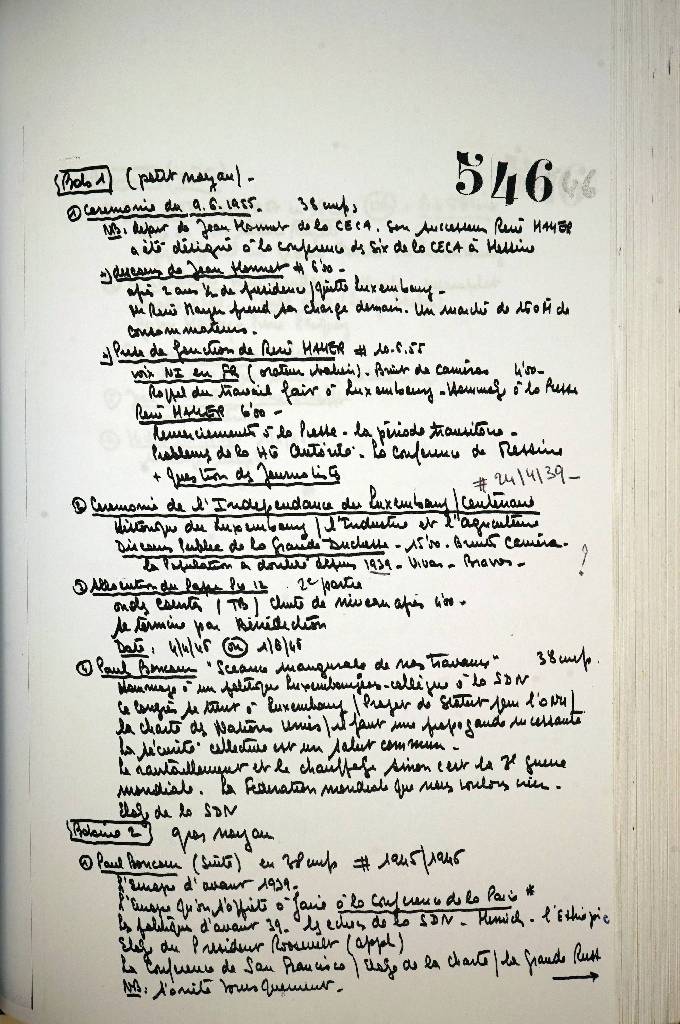 546
Bob 1 (petit noyau) -
① Ceremonie du 9.6.1955. 38 cm/s
NB: depart de Jean Monnet de la CECA. Son successeur René MAYER
a été désigné à la conference des Six de la CECA à Messine
*) discours de Jean Monnet # 6'00 -
après 2 ans ½ de presidence / quitte Luxembourg -
Mr René Mayer prend sa charge demain. Un marché de 150 M de
consommateurs.
*) Prise de fonction de René MAYER # 10.6.55
voix NI en FR ( ). Bruit de caméras 4'50 -
Rappel du travail fait à Luxembourg - Hommage à la Presse
René MAYER 6'00 -
Remerciements à la Presse - la période transitoire -
Problemes de la Hte Autorité - la Conference de Messine
+ Question des Journalists
# 24/4/39 -
② Ceremonie de l'Independance du Luxembourg / Centenaire
Historique du Luxembourg / l'Industrie et l'agriculture
Discours Public de la Grande Duchesse - 15'00. Bruits Caméra -
la Population a doublé depuis 1939 - Vivas - Bravos - ?
③ Allocution du Pape Pie 12 2e partie
ondes courtes (TB) Chute de niveau après 4'00 -
se termine par Bénédiction
Date: 4/4/45 ou 1/8/45
④ Paul Boncour "Seance inaugurale de nos travaux" 38 cm/s.
Hommage à un politique Luxembourgeois - collègue à la SDN
Ce congrès se tient à Luxembourg / Projet de Statut pour l'ONU /
la charte des Nations Unies / il faut une propagande incessante
La sécurité collective est un salut commun -
Le ravitaillement et le chauffage sinon c'est la 3e guerre
mondiale. La Federation mondiale que nous voulons créer -
Eloge de la SDN
Bobine 2 gros noyau
① Paul Boncour (Suite) en 38 cm/s # 1945/1946
l'Europe d'avant 1939.
l'Europe qu'on s'apprête à faire à la Conference de la Paix *
La politique d'avant 39. les echecs de la SDN - Munich - l'Ethiopie
Eloge du President Roosevelt (appl)
La Conference de San Francisco / Eloge de la charte / la grande Russ →
NB: s'arrête brusquement -